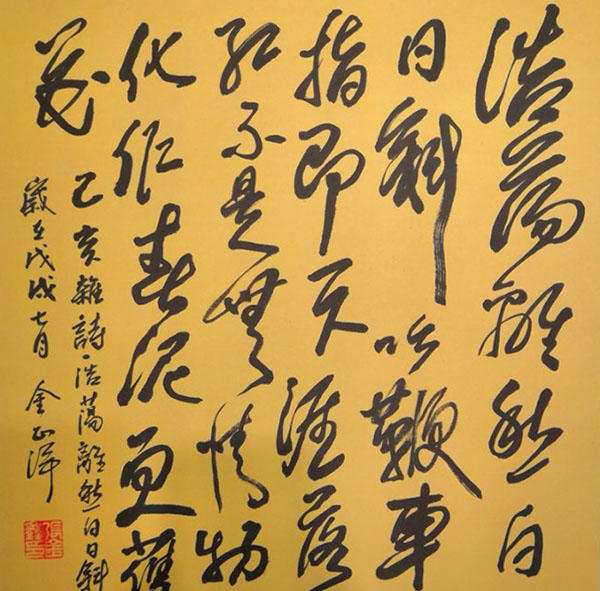 浩蕩離愁白
日斜吟鞭東
指即天涯落
紅不是無情物
化作春泥更護
花
己亥雜詩·浩蕩離愁白日斜
歲在戊戌七月 金正